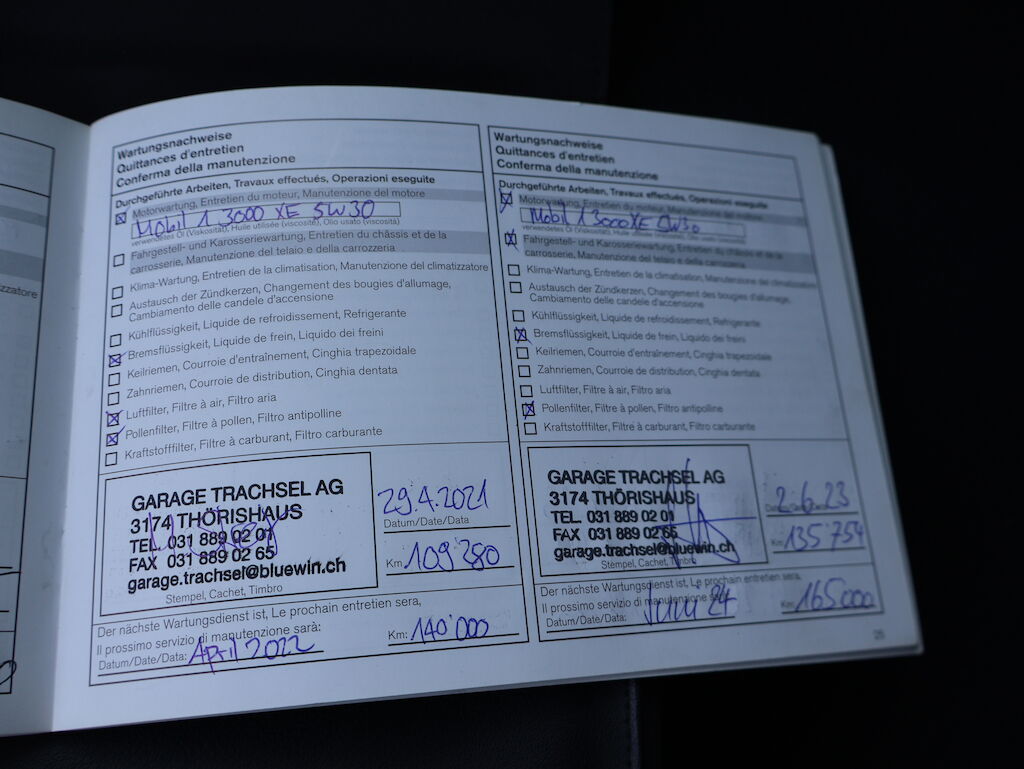 zzatore
Wartungsnachweise
Quittances d'entretien
Conferma della manutenzione
Durchgeführte Arbeiten, Travaux effectués, Operazioni eseguite
Motorwartung, Entretien du moteur, Manutenzione del motore
Mobil 1 3000 XE 5W30
verwendetes Öl (Viskosität), Huile utilisée (viscosité), Olio usato (viscosità)
Fahrgestell- und Karosseriewartung, Entretien du châssis et de la
carrosserie, Manutenzione del telaio e della carrozzeria
Klima-Wartung, Entretien de la climatisation, Manutenzione del climatizzatore
Austausch der Zündkerzen, Changement des bougies d'allumage,
Cambiamento delle candele d'accensione
Kühlflüssigkeit, Liquide de refroidissement, Refrigerante
Bremsflüssigkeit, Liquide de frein, Liquido dei freini
Keilriemen, Courroie d'entraînement, Cinghia trapezoidale
Zahnriemen, Courroie de distribution, Cinghia dentata
Luftfilter, Filtre à air, Filtro aria
Pollenfilter, Filtre à pollen, Filtro antipolline
Kraftstofffilter, Filtre à carburant, Filtro carburante
GARAGE TRACHSEL AG
3174 THÖRISHAUS
TEL. 031 889 02 01
FAX 031 889 02 65
garage.trachsel@bluewin.ch
Stempel, Cachet, Timbro
29.4.2021
Datum/Date/Data
Km 109'380
Der nächste Wartungsdienst ist, Le prochain entretien sera,
Il prossimo servizio di manutenzione sarà:
Datum/Date/Data: April 2022
Km: 140'000
Wartungsnachweise
Quittances d'entretien
Conferma della manutenzione
Durchgeführte Arbeiten, Travaux effectués, Operazioni eseguite
Motorwartung, Entretien du moteur, Manutenzione del motore
Mobil 1 3000 XE 5W30
verwendetes Öl (Viskosität), Huile utilisée (viscosité), Olio usato (viscosità)
Fahrgestell- und Karosseriewartung, Entretien du châssis et de la
carrosserie, Manutenzione del telaio e della carrozzeria
Klima-Wartung, Entretien de la climatisation, Manutenzione del climatizzatore
Austausch der Zündkerzen, Changement des bougies d'allumage,
Cambiamento delle candele d'accensione
Kühlflüssigkeit, Liquide de refroidissement, Refrigerante
Bremsflüssigkeit, Liquide de frein, Liquido dei freini
Keilriemen, Courroie d'entraînement, Cinghia trapezoidale
Zahnriemen, Courroie de distribution, Cinghia dentata
Luftfilter, Filtre à air, Filtro aria
Pollenfilter, Filtre à pollen, Filtro antipolline
Kraftstofffilter, Filtre à carburant, Filtro carburante
GARAGE TRACHSEL AG
3174 THÖRISHAUS
TEL. 031 889 02 01
FAX 031 889 02 65
garage.trachsel@bluewin.ch
Stempel, Cachet, Timbro
2.6.23
Datum/Date/Data
Km 135'754
Der nächste Wartungsdienst ist, Le prochain entretien sera,
Il prossimo servizio di manutenzione sarà:
Datum/Date/Data: Juni 24
Km: 165'000
25